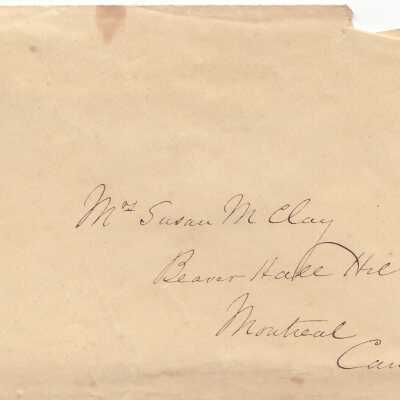 Mrs Susan M Clay
Beaver Hall Hil
Montreal
Can